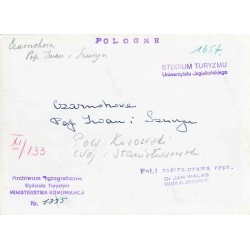 POLOGNE
Czarnohora
Pop Iwan i Szuryn
1657
STUDIUM TURYZMU
Uniwersytetu Jagiellońskiego
Czarnohora
Pop Iwan i Szuryn
Pow. Kosowski
Woj. Stanisławowsk
XI/133
Archiwum Fotograficzne
Wydziału Turystyki
MINISTERSTWA KOMUNIKACJI
Nr. 1335
Fot. i zastrz. prawa repr.
Dr JAN WALAS